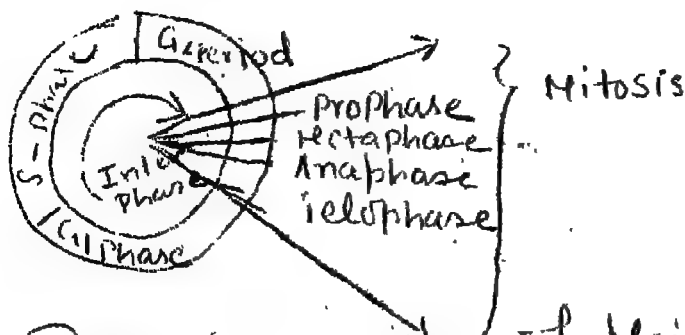 G₂ period
S-phase
Inter
phase
G1 Phase
Prophase
Metaphase
Anaphase
Telophase
Mitosis